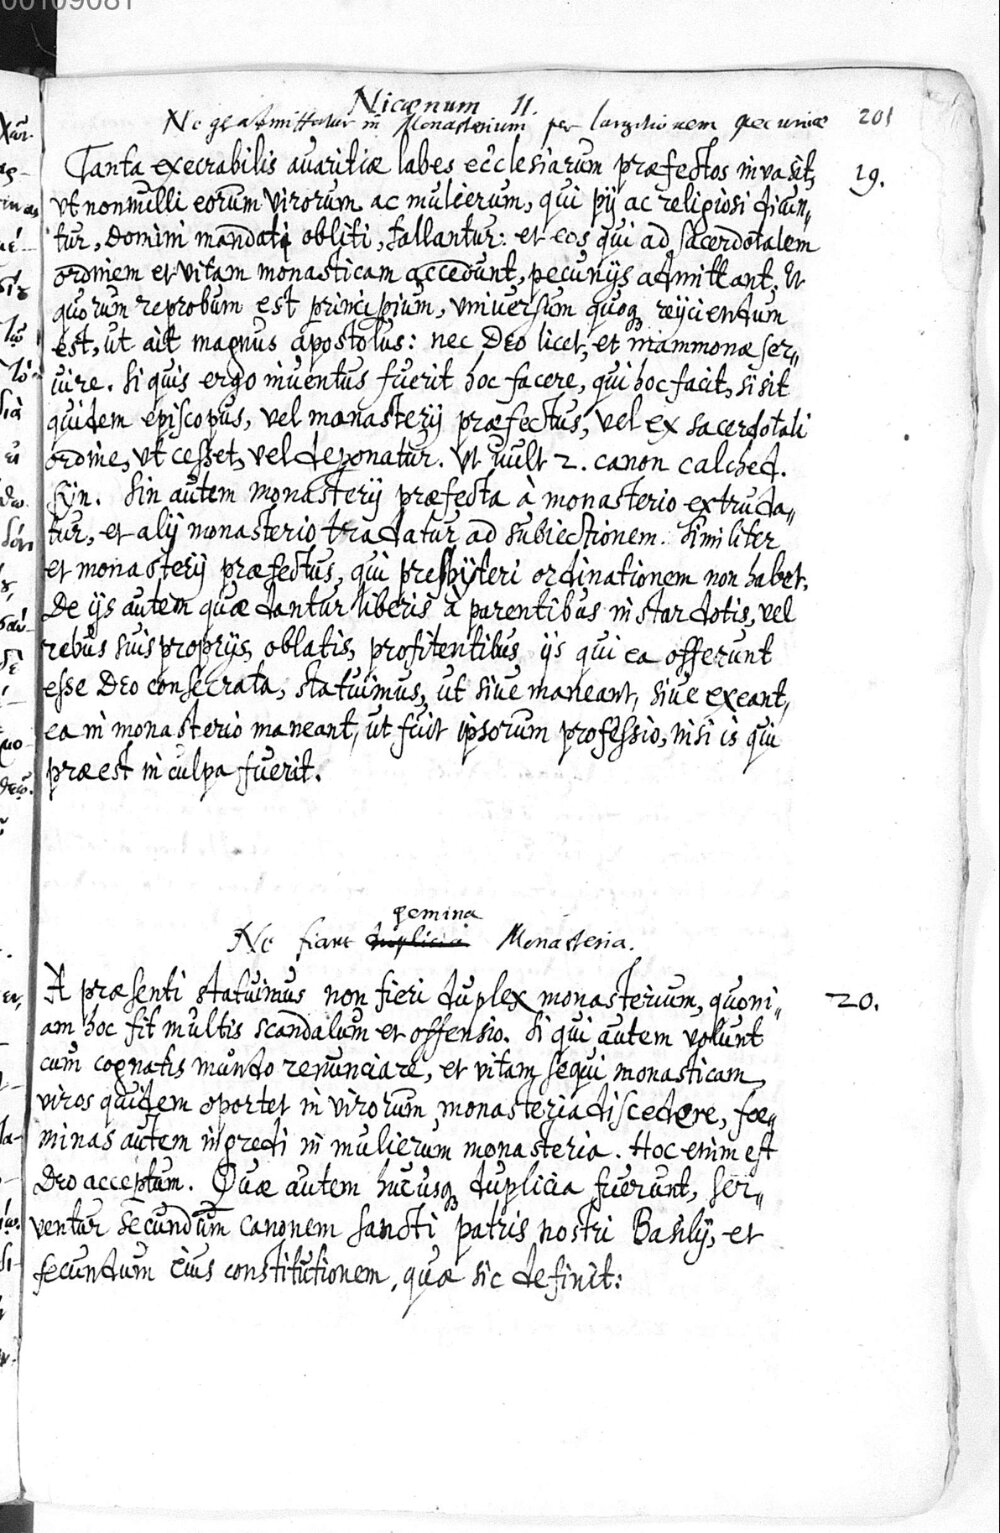 00109081
Nicænum II.
Ne qs admittatur in Monasterium per largitionem pecuniæ 201
Tanta execrabilis auaritiæ labes ecclesiarum præfectos inuasit, 19.
vt nonnulli eorum virorum ac mulierum, qui pij ac religiosi dicun„
tur, Domini mandati obliti, fallantur: et eos qui ad sacerdotalem
ordinem et vitam monasticam accedunt, pecunijs admittant. Et
quorum reprobum est principium, vniuersum quoq reijciendum
est, ut ait magnus apostolus: nec Deo licet, et mammonæ ser„
uire. Si quis ergo inuentus fuerit hoc facere, qui hoc facit, si sit
quidem episcopus, vel monasterij præfectus, vel ex sacerdotali
ordine, vt cesset, vel deponatur. Vt vult 2. canon calched.
Syn. Sin autem monasterij præfecta à monasterio extruda„
tur, et alij monasterio tradatur ad subiectionem. Similiter
et monasterij præfectus, qui presbyteri ordinationem non habet.
De ijs autem quæ dantur liberis à parentibus instar dotis, vel
rebus suis proprijs, oblatis, profitentibus ijs qui ea offerunt
esse Deo consecrata, statuimus, ut siue maneant, siue exeant,
ea in monasterio maneant, ut fuit ipsorum professio, nisi is qui
præest in culpa fuerit.
gemina
Ne fiant duplicia Monasteria.
A præsenti statuimus non fieri duplex monasterium, quoni„ 20.
am hoc fit multis scandalum et offensio. Si qui autem volunt
cum cognatis mundo renunciare, et vitam sequi monasticam,
viros quidem oportet in virorum monasteria discedere, fœ„
minas autem ingredi in mulierum monasteria. Hoc enim est
Deo acceptum. Quæ autem hucusq duplicia fuerunt, ser„
ventur secundum canonem sancti patris nostri Basilij, et
secundum eius constitutionem, quæ sic definit: